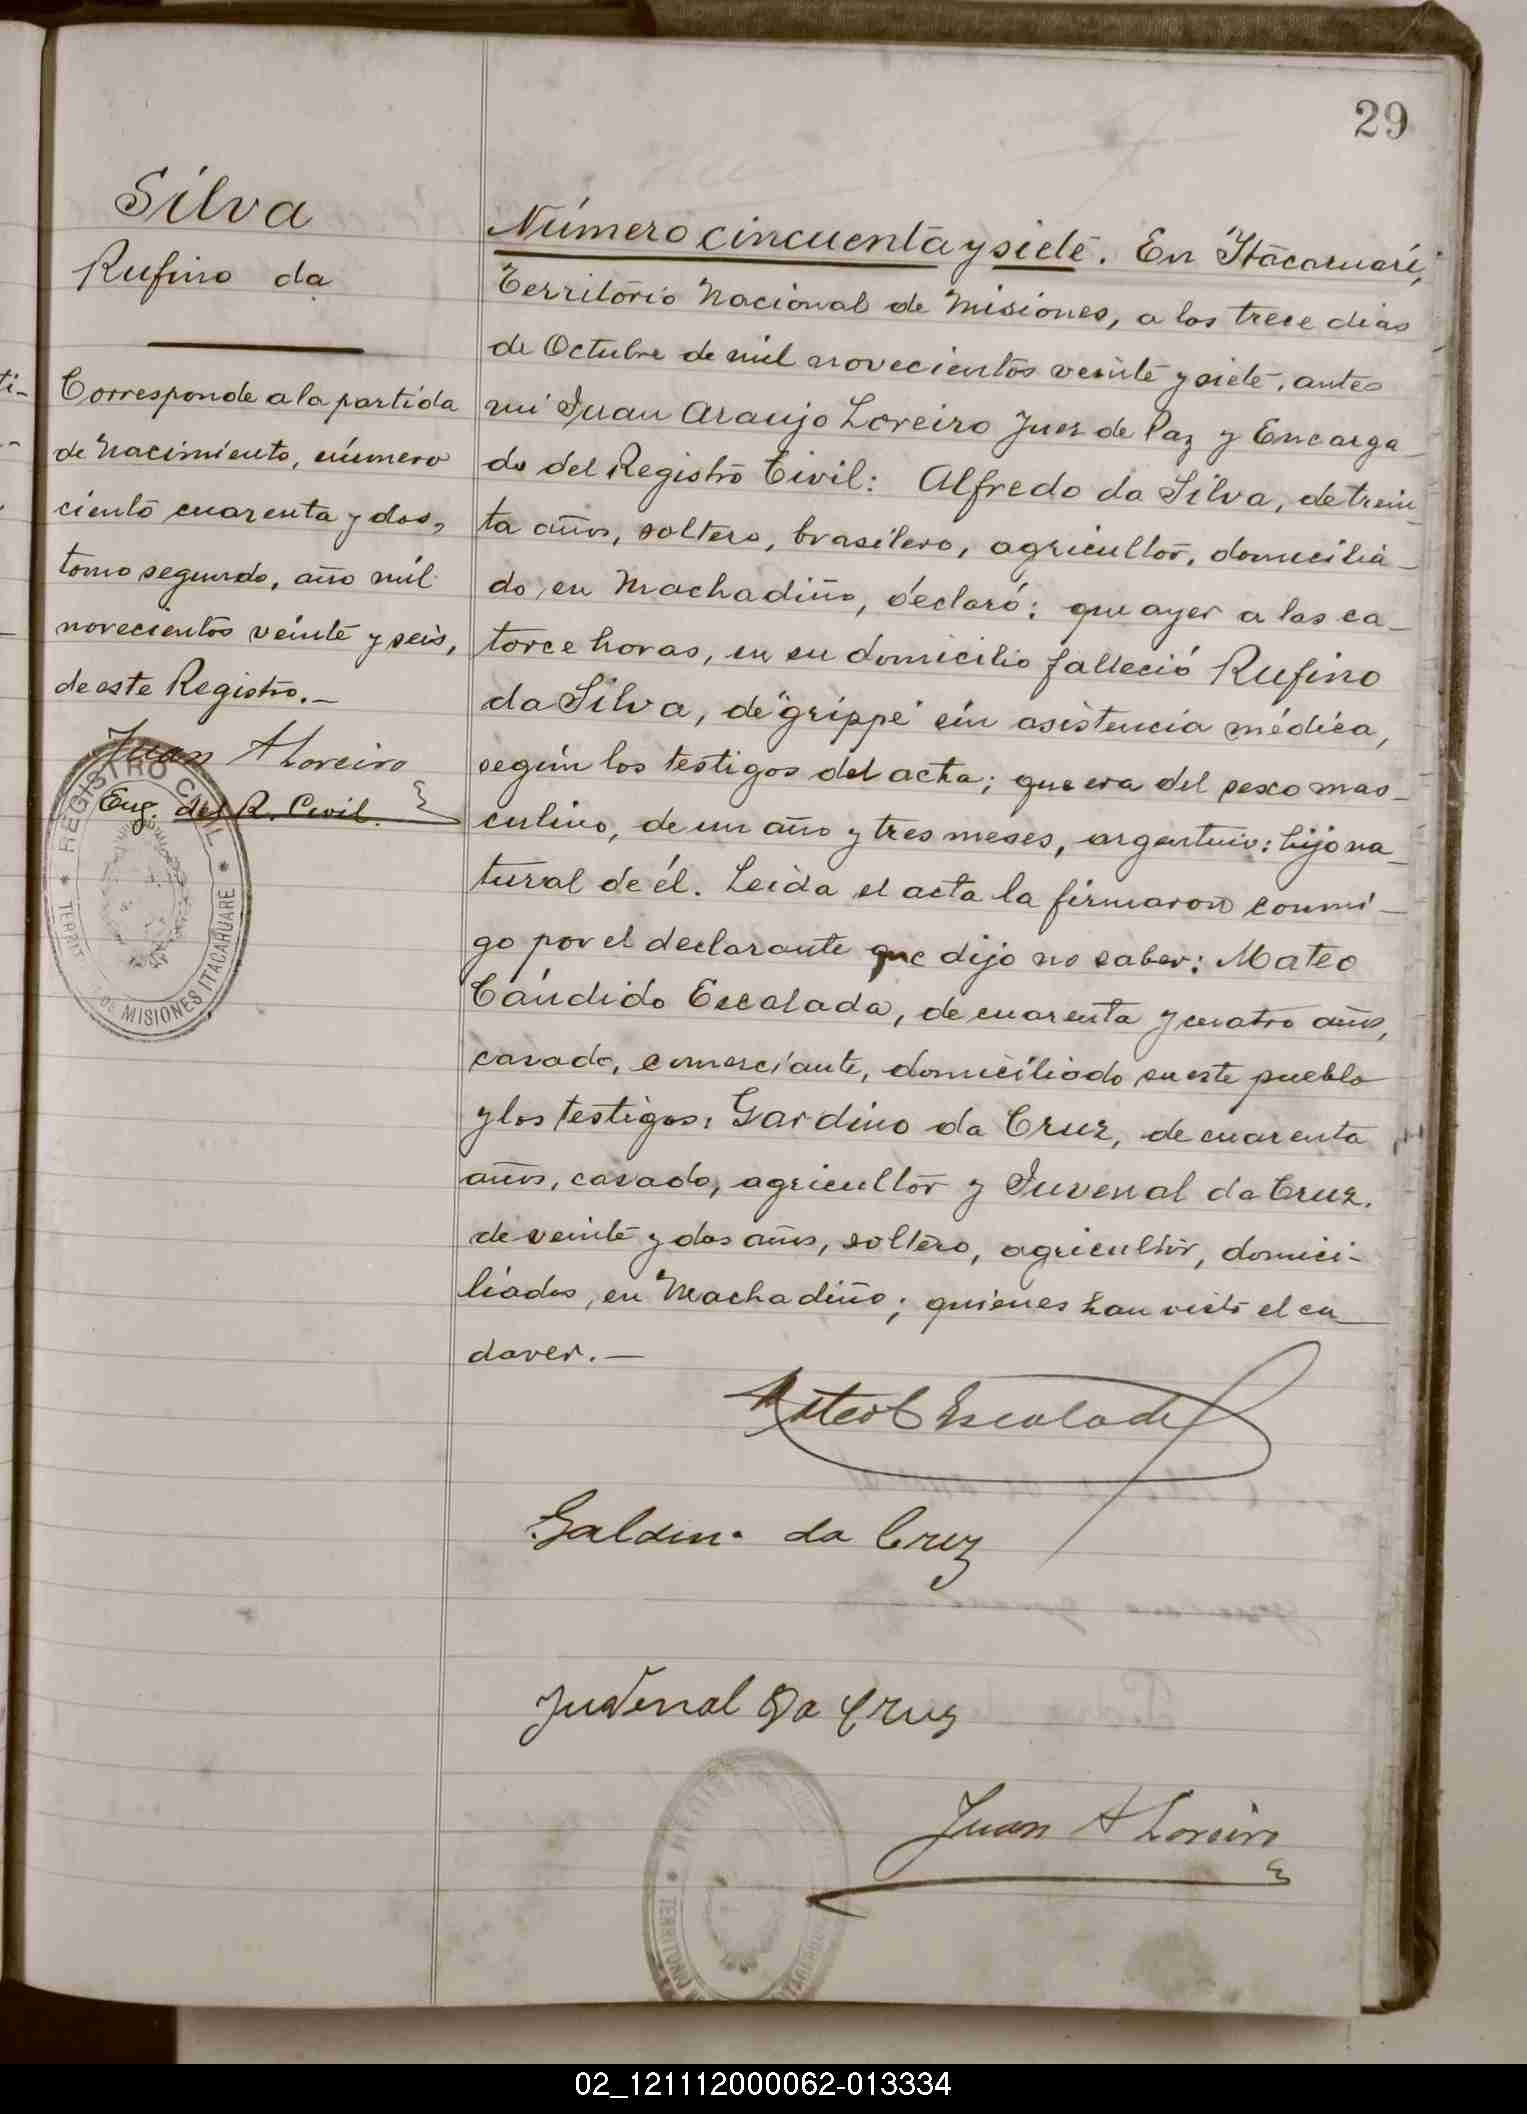 29
Silva
Rufino da
Corresponde a la partida
de Nacimiento, número
ciento cuarenta y dos,
tomo segundo, año mil
novecientos veinte y seis,
de este Registro.—
Juan A Loreiro
Eng. del R. Civil.
REGISTRO CIVIL
TERRIT DE MISIONES ITACARUARE
Número cincuenta y siete. En Itacaruaré,
Territorio Nacional de Misiones, a los trece dias
de Octubre de mil novecientos veinte y siete, antes
mi Juan Araujo Loreiro Juez de Paz y Encarga-
do del Registro Civil: Alfredo da Silva, de trein-
ta años, soltero, brasilero, agricultor, domicilia-
do, en Machadiño, declaró: que ayer a las ca-
torce horas, en su domicilio falleció Rufino
da Silva, de "grippe" sin asistencia médica,
según los testigos del acta; que era del sexo mas-
culino, de un año y tres meses, argentino: hijo na-
tural de él. Leida el acta la firmaron conmi-
go por el declarante que dijo no saber: Mateo
Cándido Escalada, de cuarenta y cuatro años,
casado, comerciante, domiciliado en este pueblo
y los testigos: Gardino da Cruz, de cuarenta
años, casado, agricultor y Juvenal da Cruz.
de veinte y dos años, soltero, agricultor, domici-
liados, en Machadiño; quienes han visto el ca-
daver.—
Mateo C Escalada
Galdino da Cruz
Juvenal Da Cruz
Juan A Loreiro
TERRITORIO
02_121112000062-013334